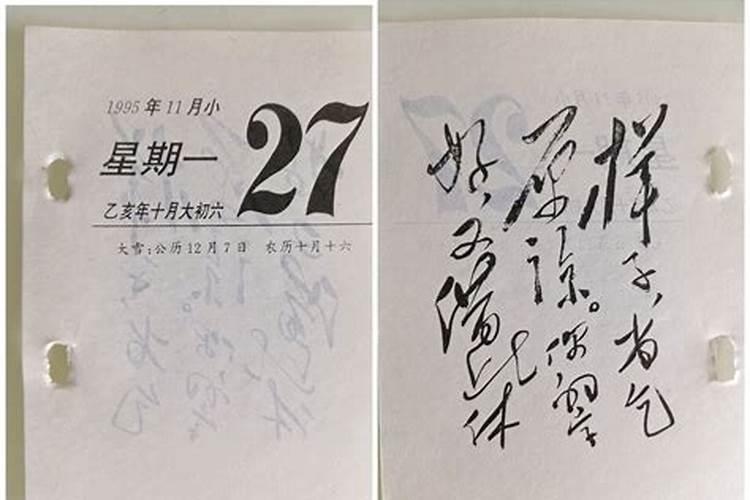 1995年11月小
星期一
27
乙亥年十月大初六
大雪:公历12月7日 农历十月十六
样子,尚乞
原谅。你的字
好,又備此体